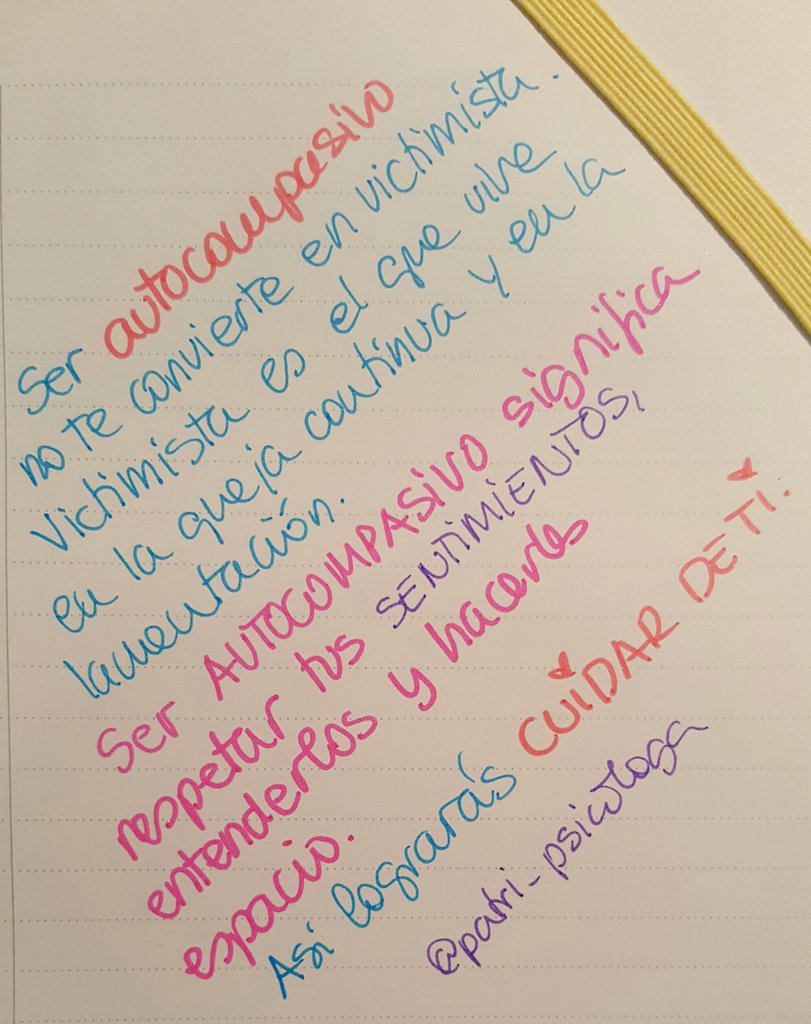 Ser autocompasivo
no te convierte en victimista.
Victimista es el que vive
en la queja continua y en la
lamentación.
Ser AUTOCOMPASIVO significa
respetar tus SENTIMIENTOS,
entenderlos y hacerles
espacio.
Asi lograrás CUIDAR DE TI.
@patri_psicologa